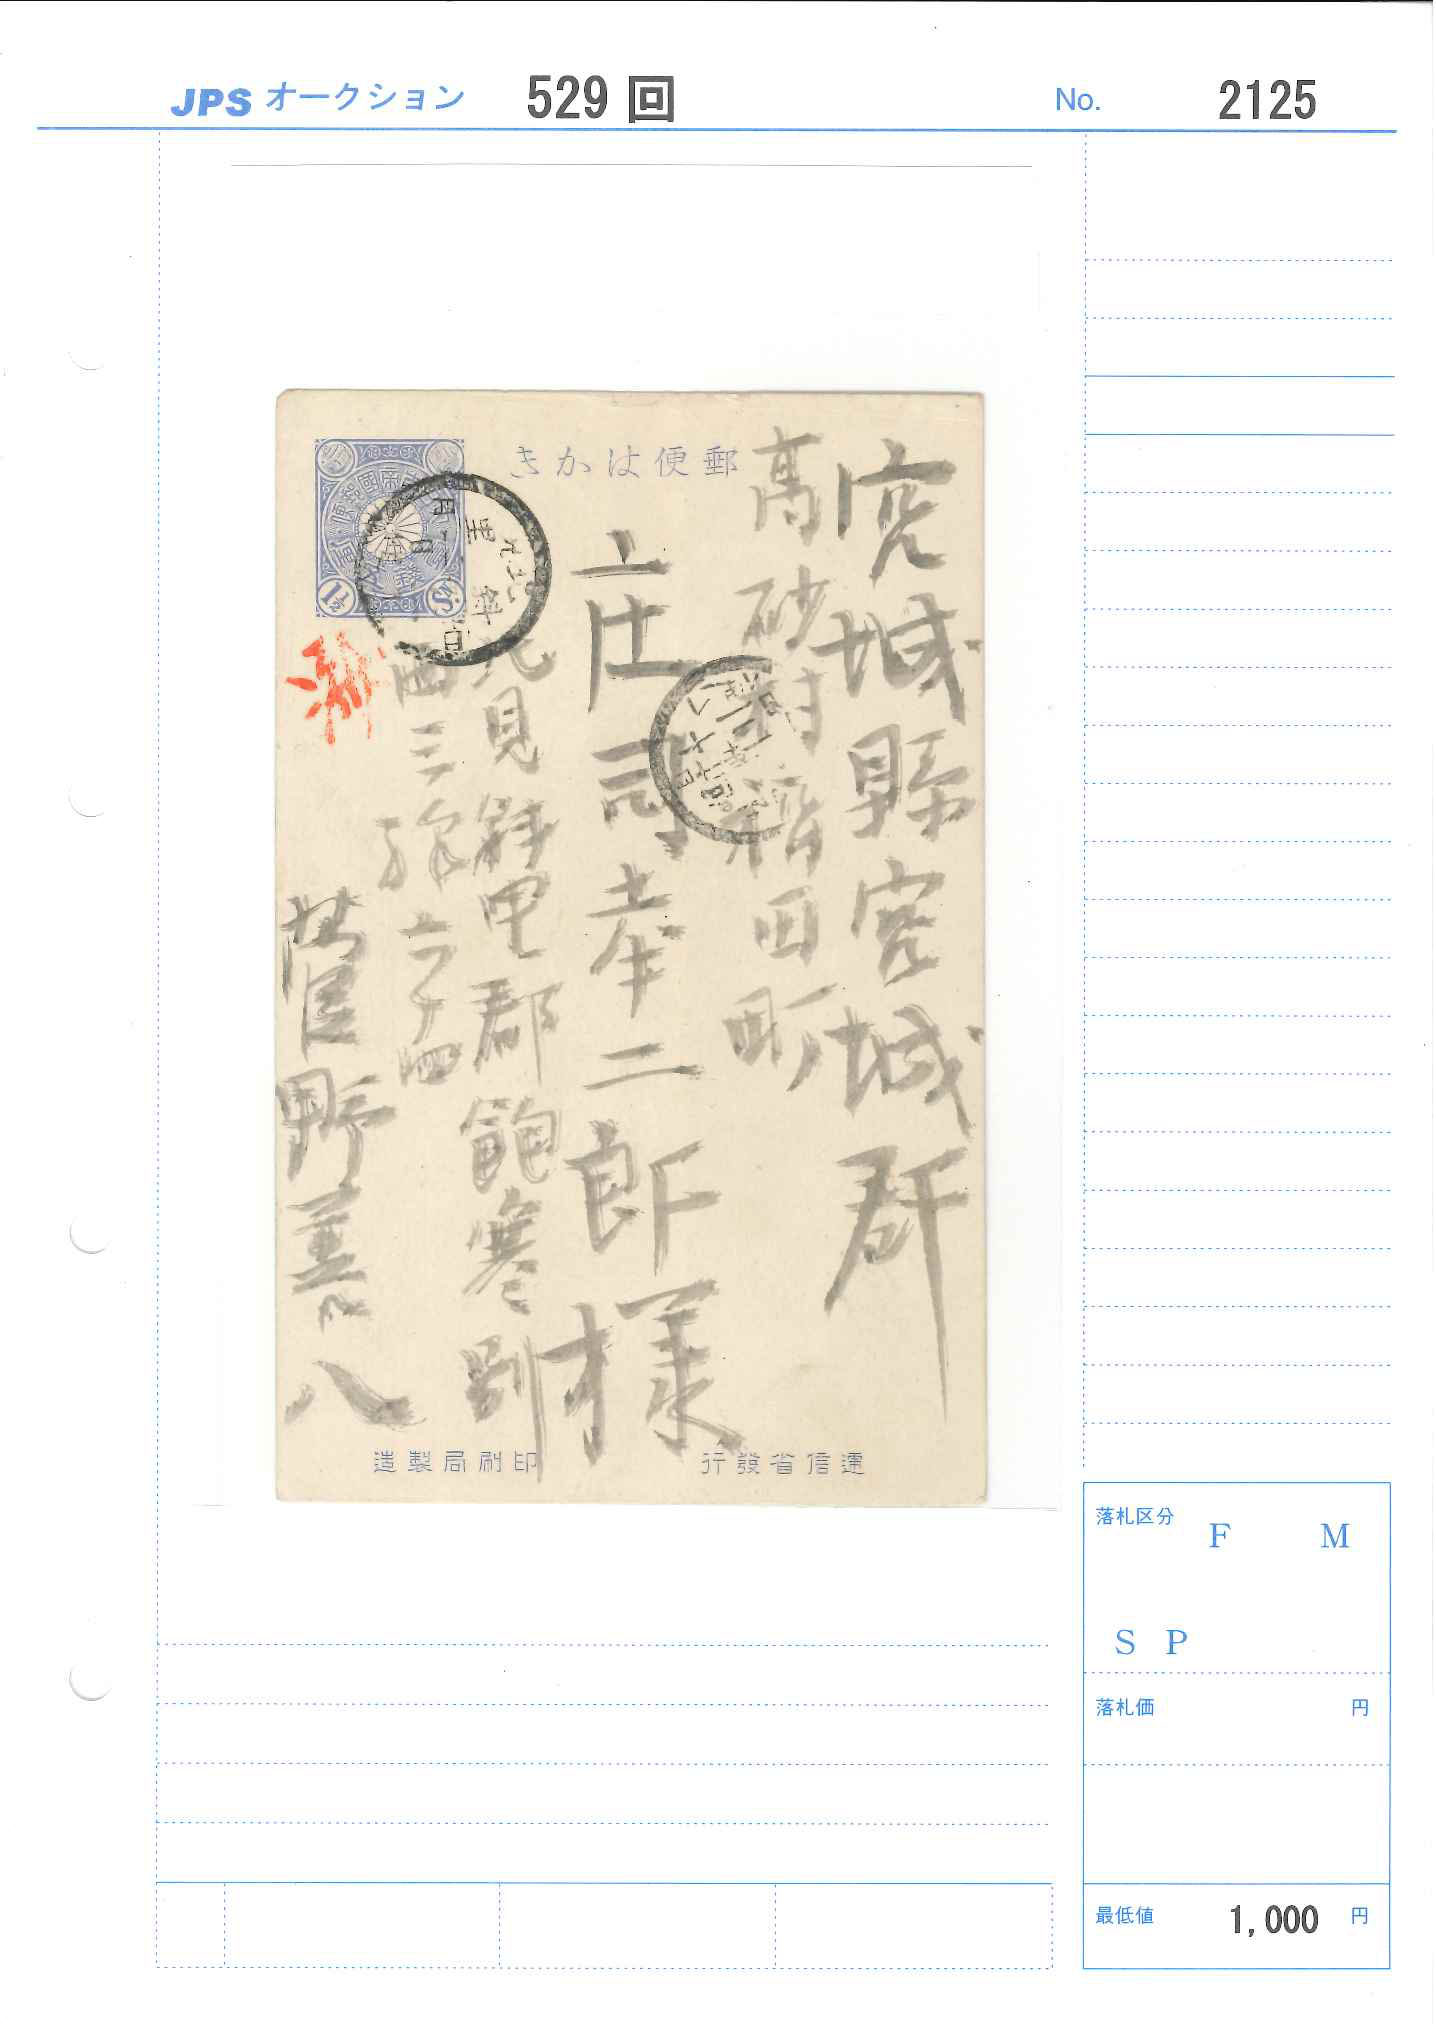 JPS オークション 529 回 No. 2125
郵便はかき
宮城縣宮城郡
高砂村福田町
庄司孝二郎様
北見斜里郡飽寒別
西三線六十四
菅野善八
斜里
遞信省發行
印刷局製造
落札区分
F M
S P
落札価 円
最低値 1,000 円